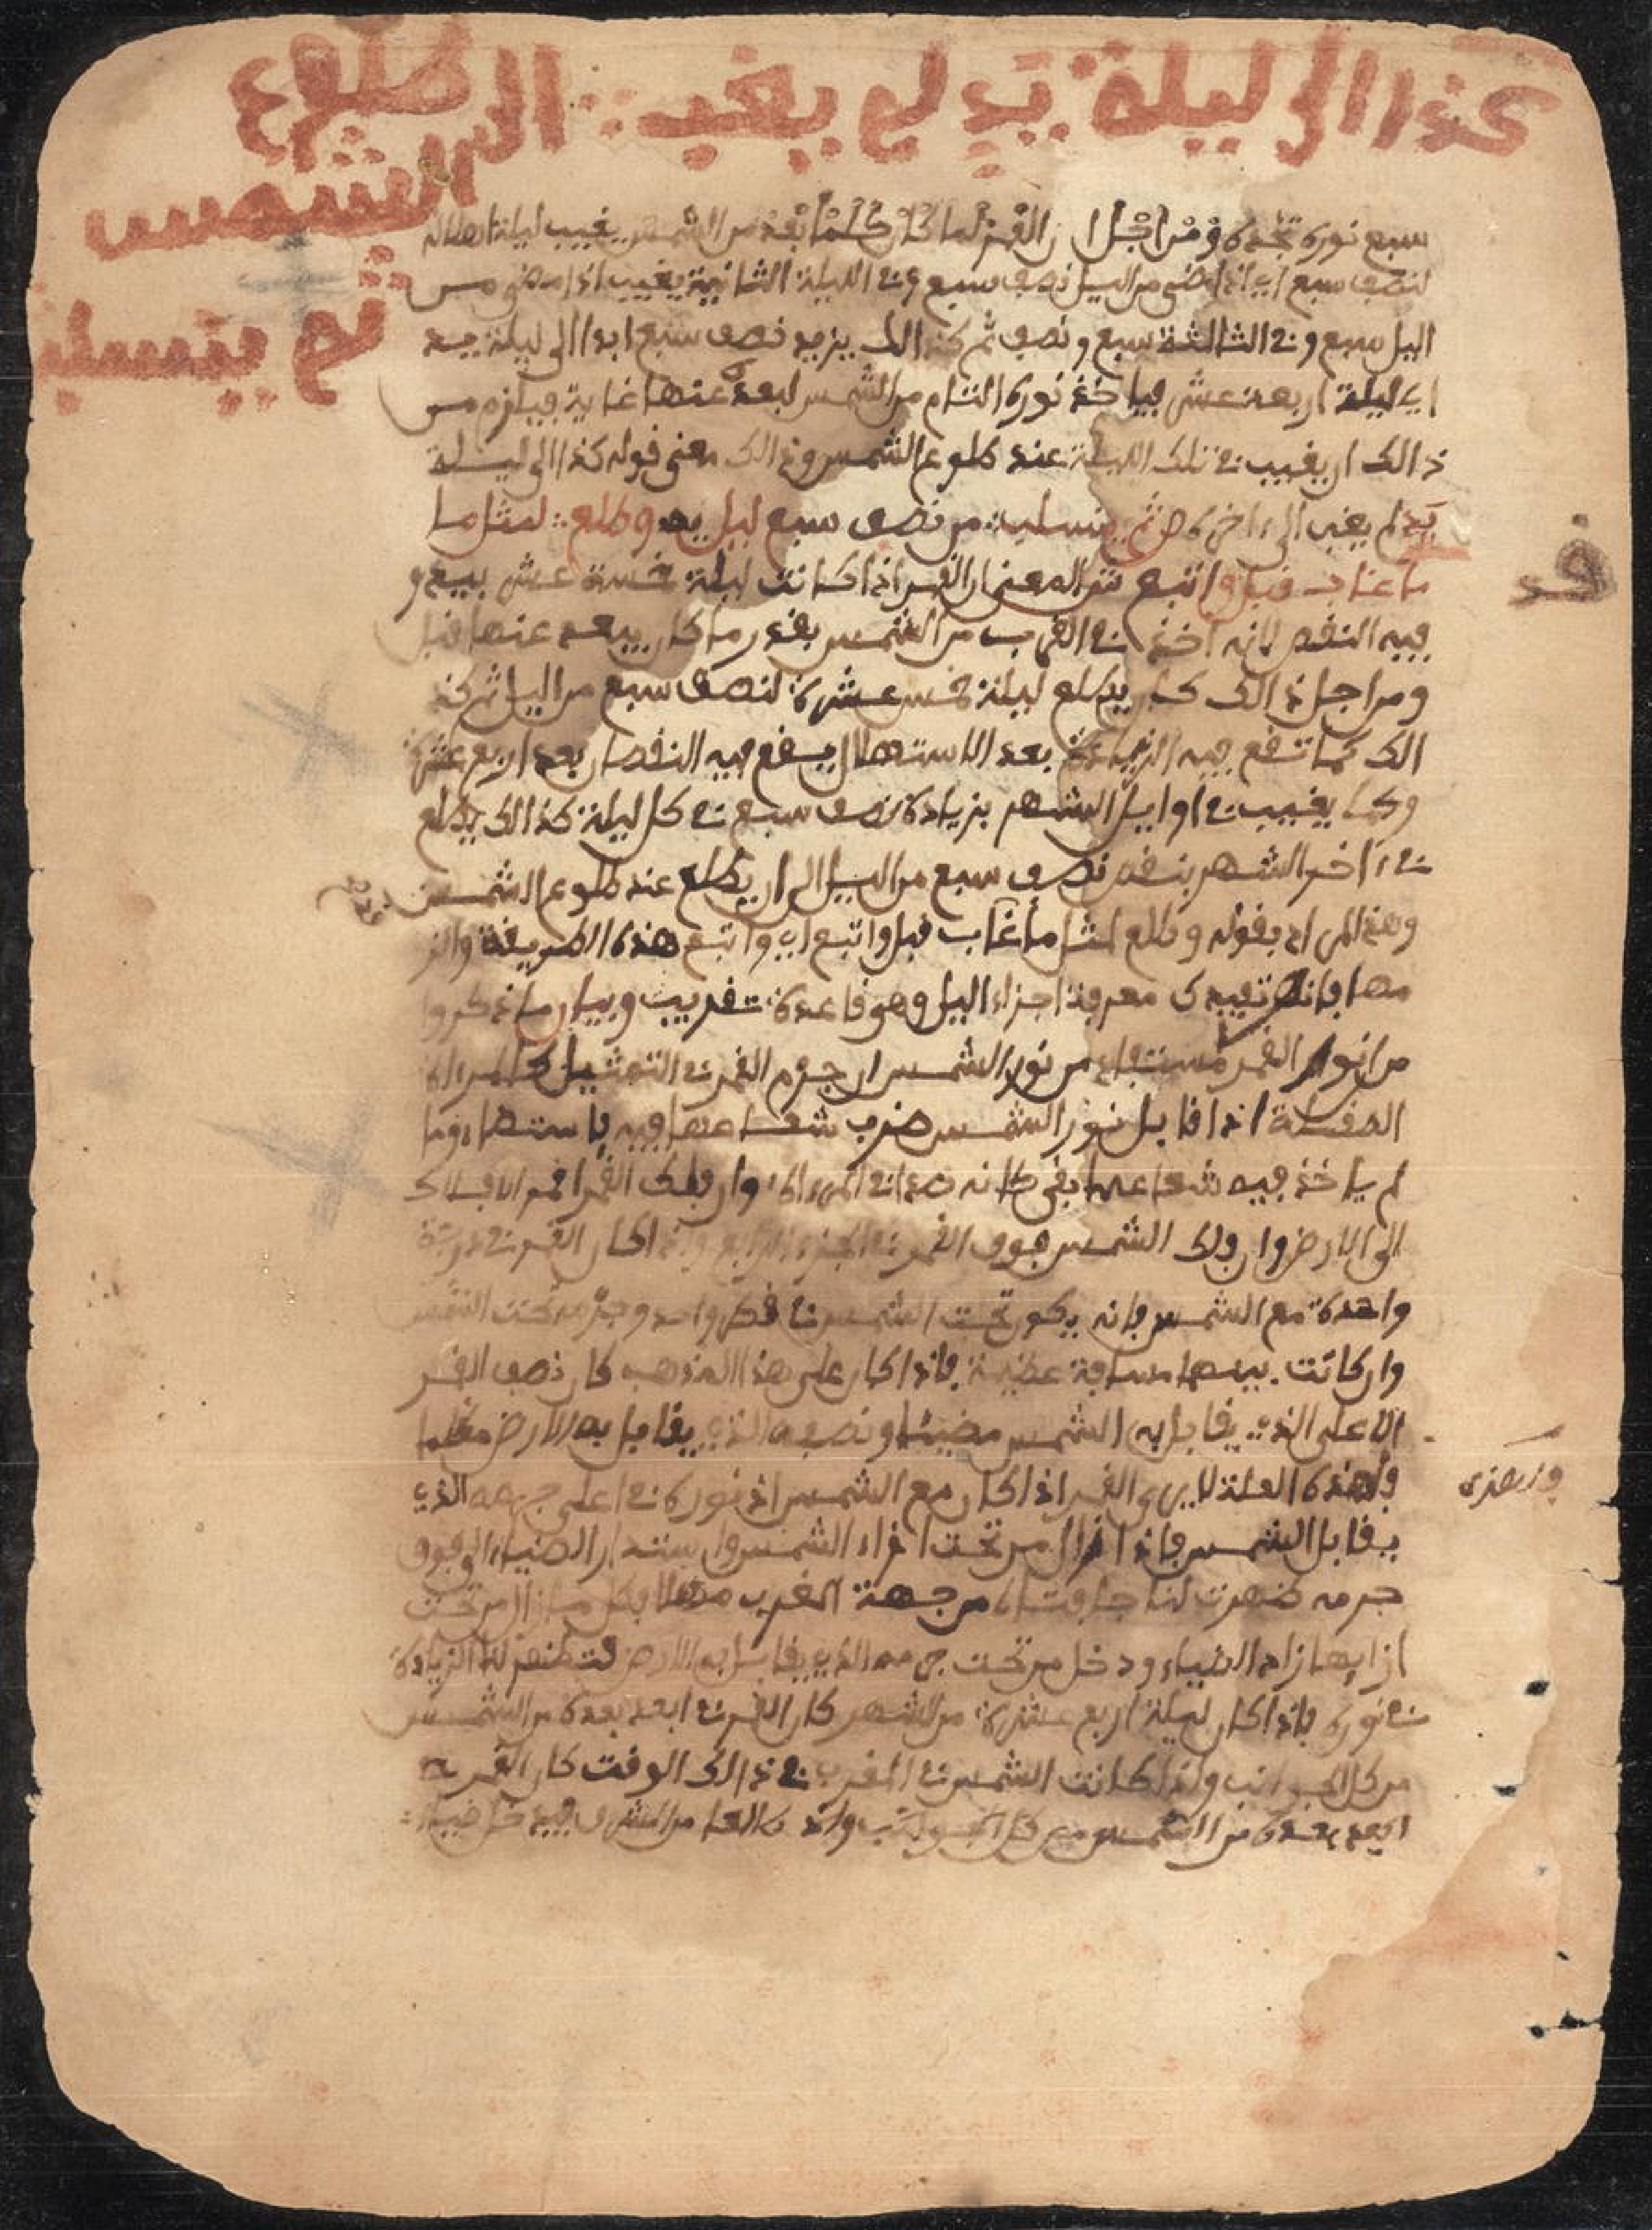 كذا الى ليلة يد لم يغب الى طلوع
الشمس
ثم بنسبة
سبع نوره تجده ومن اجل ان القمر لما كان كلما بعد من الشمس يغيب ليلة
لنصف سبع اي اذا مضى من اليل نصف سبع وفي الليلة الثانية يغيب اذا مضى من
اليل سبع وفي الثالثة سبع ونصف ثم كذالك يزيد نصف سبع ابدا الى ليلة يد
اي ليلة اربعة عشر فياخذ نوره التام من الشمس لبعده عنها غاية فيلزم من
ذالك ان يغيب في تلك الليلة عند طلوع الشمس وذالك معنى قوله كذا الى ليلة
يد لم يغب الى اخره ص ثم من نصف سبع ليل يه وطلع لمثل ما
ما غاب قبل واتبع ش المعنى ان القمر اذا كانت ليلة خمسة عشر
فيه النقص لانه اخذ في القرب من الشمس بقدر ما كان يبعد عنها قبل
ومن اجل ذالك كان يطلع ليلة خمس عشرة لنصف سبع من اليل ثم كذ
الك كما تقع فيه الزيادة بعد الاستهلال يقع فيه النقصان بعد اربع عشرة
وكما يغيب في اوايل الشهر بزيادة نصف سبع في كل ليلة كذالك يطلع
في اخر الشهر بنقص نصف سبع من اليل الى ان يطلع عند طلوع الشمس
وهذا المراد بقوله وطلع لمثل ما غاب قبل واتبع اي واتبع هذه الطريقة والز
مها فانها تفيدك معرفة اجزاء اليل وهو قاعدة تقريب وبيان ما ذكروا
من انوار القمر مستفاد من نور الشمس ان جرم القمر في التمثيل كالمراة
الصقيلة اذا قابل نور الشمس ضرب شعاعها فيه فاستضاء وما
لم ياخذ فيه شعاعها بقي كانه صدا في المراة وان فلك القمر اقرب الافلاك
الى الارض وان فلك الشمس فوق القمر في الجزء الرابع واذا كان القمر في درجة
واحدة مع الشمس فانه يكون تحت الشمس في قطر واحد وجرمه تحت الشمس
وان كانت بينهما مسافة عظيمة فاذا كان على هذا المذهب كان نصف القمر
الاعلى الذي يقابل به الشمس مضيئا ونصفه الذي يقابل به الارض مظلما
ولهذه العلة لا يرى القمر اذا كان مع الشمس اذ نوره في اعلى جهته الذي
يقابل الشمس فاذا زال من تحت ازاء الشمس واستدار الضياء الى فوق
جرمه ظهرت لنا من جهة المغرب فكل ما زال من تحت
ازايها زاد الضياء ودخل من تحت جرمه الذي يقابل به الارض فتظهر لنا الزيادة
في نوره فاذا كان ليلة اربع عشرة من الشهر كان القمر في ابعد بعده من الشمس
من كل الجوانب ولذا كانت الشمس في المغرب في ذالك الوقت كان القمر
ابعد بعده من الشمس من كل الجوانب